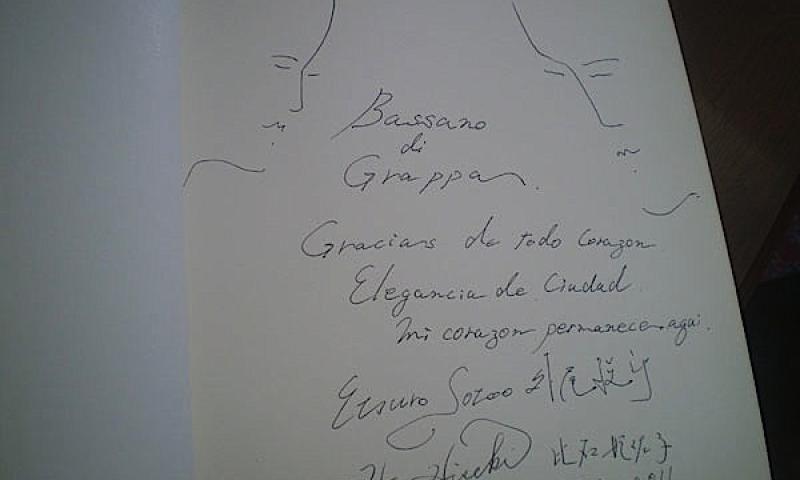 Bassano
di
Grappa.
Gracias de todo corazon
Elegancia de Ciudad
mi corazon permanece aqui.
Etsuro Sotoo 外尾悦郎
Hiseki